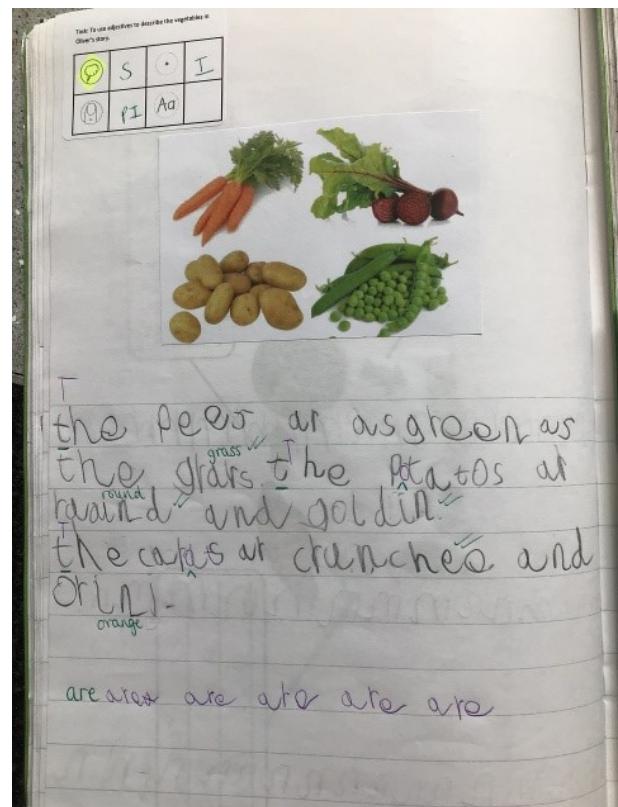 Task: To use adjectives to describe the vegetables in
Oliver's story.
S . I
PI Aa
T
the pees ar as green as
grass T
the grars. the potatos ar
round
raaind and goldin.
T
the caras ar crunchee and
orinj.
orange
are are are are are are